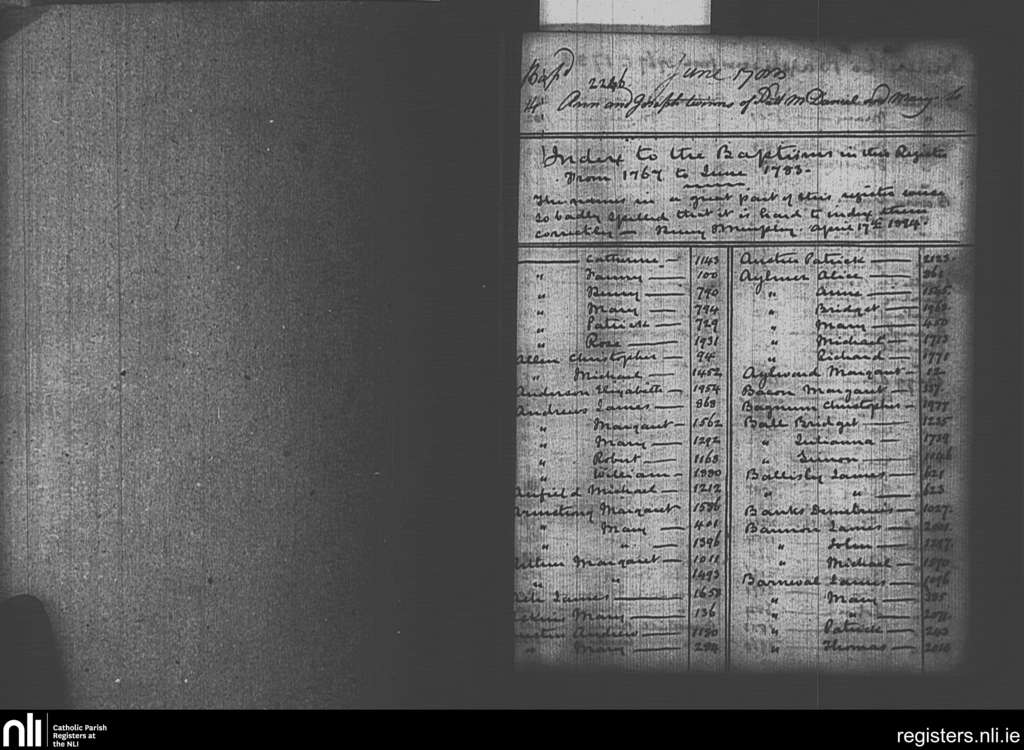 Bapd June
2246
4th Ann and Joseph twins of Patt McDaniel and Mary
Index to the Baptisms in this Register
From 1767 to June 1783.
The names in a great part of this register were
so badly spelled that it is hard to index them
correctly — April 17th 1894.
Catherine — 1143
" Fanny — 100
" Henry — 740
" Mary — 794
" Patrick — 729
" Rose — 1931
Allen Christopher — 94
" Michael — 1452
Anderson Elizabeth — 1954
Andrews James — 868
" Margaret — 1562
" Mary — 1292
" Robert — 1168
" William — 1880
Michael — 1212
Armstrong Margaret 1586
" Mary — 401
" " — 1396
Margaret — 1011
" " 1493
James — 1658
Mary — 136
Andrew — 1180
" Mary — 284
Austin Patrick — 2123
Aylmer Alice —
" Anne —
" Bridget —
" Mary —
" Michael — 1713
" Richard — 1771
Aylward Margaret —
Bacon Margaret —
Bagnum Christopher — 1977
Ball Bridget — 1235
" Julianna — 1739
" Simon — 1146
Ballisby James — 621
" " — 623
Banks — 1027
Bannon James — 2001
" John —
" Michael —
Barnewal James —
" Mary —
" "
" Patrick — 243
" Thomas — 2010
nli
Catholic Parish
Registers at
the NLI
registers.nli.ie